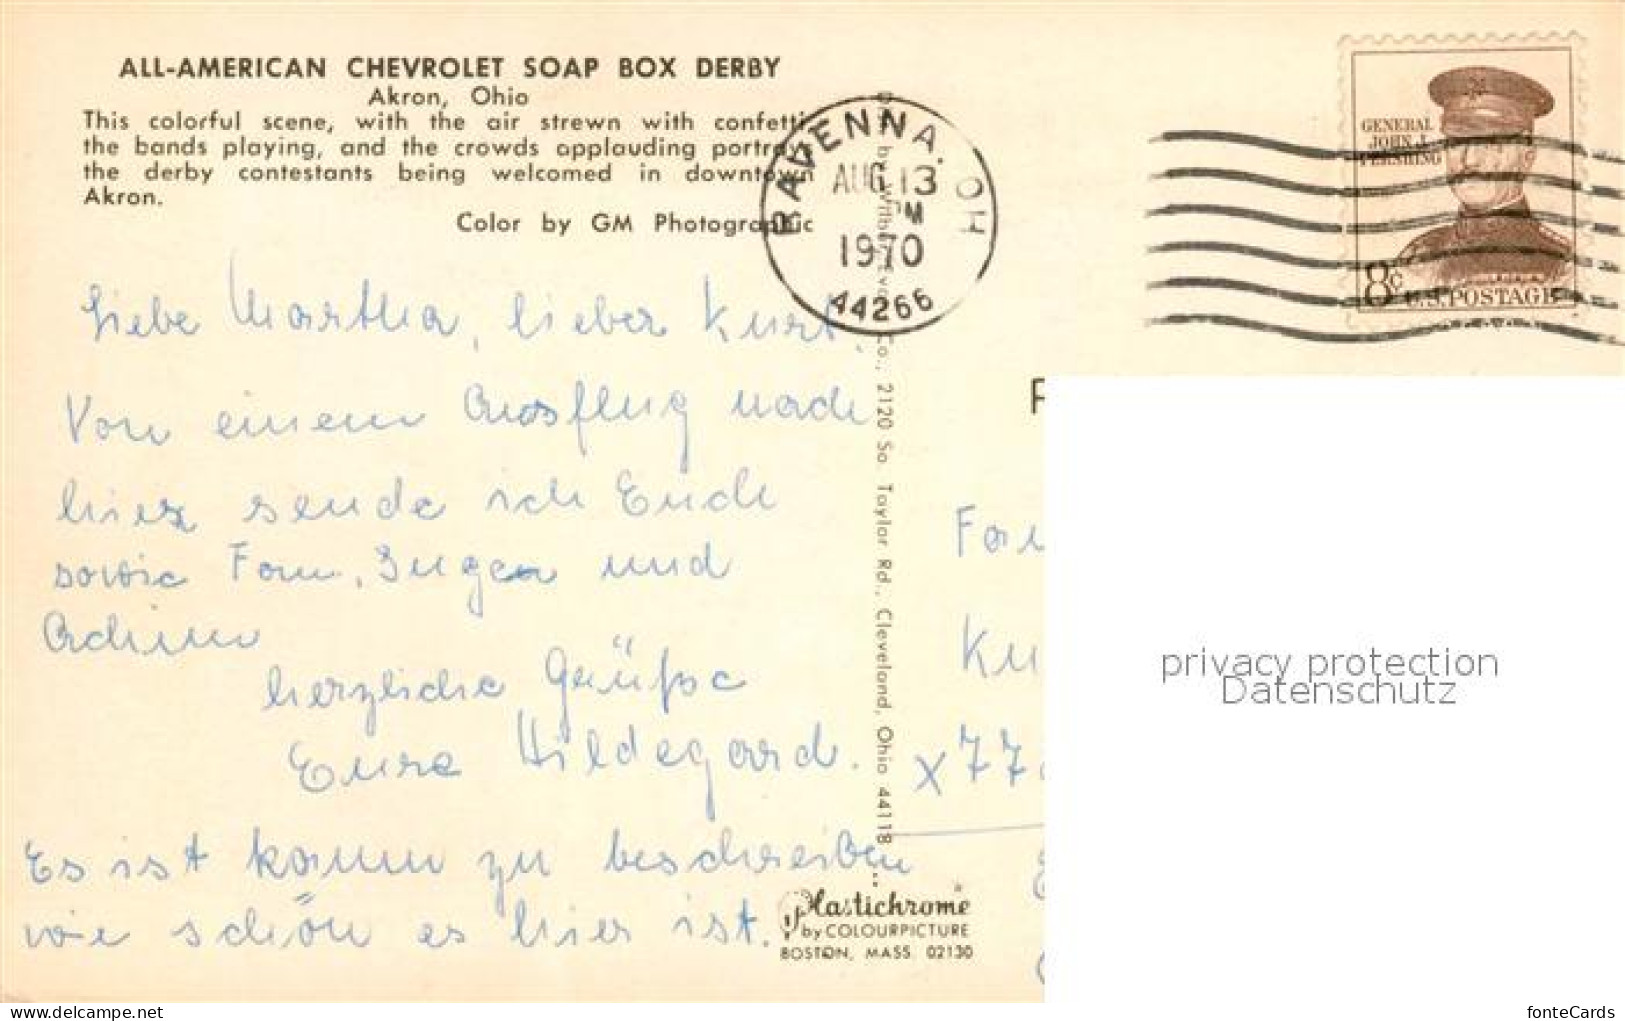 ALL-AMERICAN CHEVROLET SOAP BOX DERBY
Akron, Ohio
This colorful scene, with the air strewn with confetti,
the bands playing, and the crowds applauding portrays
the derby contestants being welcomed in downtown
Akron.
Color by GM Photographic
RAVENNA, OH
AUG 13
PM
1970
44266
GENERAL
JOHN J.
PERSHING
8c
U.S. POSTAGE
Liebe Martha, lieber Kurt,
Von einem Ausflug nach
hier sende ich Euch
sowie Fam. Jugen und
Achim
herzliche Grüße
Eure Hildegard.
Es ist kaum zu beschreiben
wie schön es hier ist.
Co., 2120 So. Taylor Rd., Cleveland, Ohio 44118
Plastichrome
by COLOURPICTURE
BOSTON, MASS. 02130
P
Fam
Ku
x 77
privacy protection
Datenschutz
www.delcampe.net
fonteCards